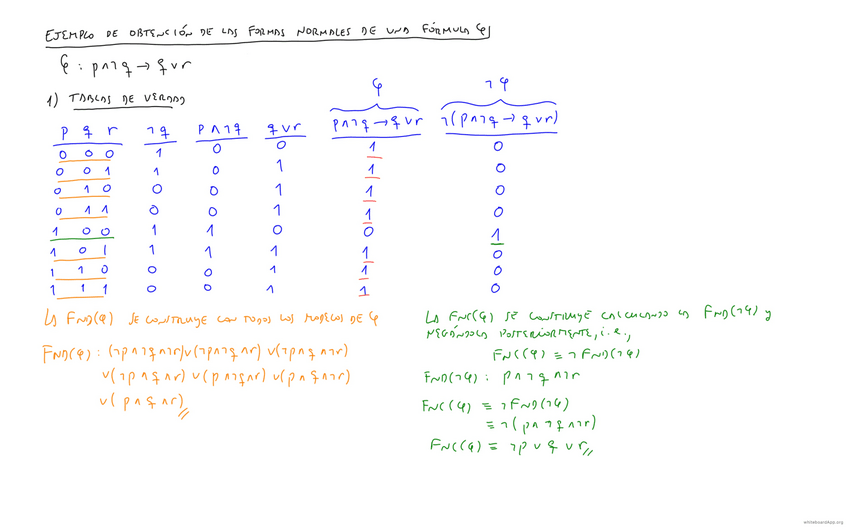 EJEMPLO DE OBTENCIÓN DE LAS FORMAS NORMALES DE UNA FÓRMULA φ
φ : p∧¬q → q∨r
1) TABLAS DE VERDAD
φ ¬φ
p q r ¬q p∧¬q q∨r p∧¬q → q∨r ¬(p∧¬q → q∨r)
0 0 0 1 0 0 1 0
0 0 1 1 0 1 1 0
0 1 0 0 0 1 1 0
0 1 1 0 0 1 1 0
1 0 0 1 1 0 0 1
1 0 1 1 1 1 1 0
1 1 0 0 0 1 1 0
1 1 1 0 0 1 1 0
LA FND(φ) SE CONSTRUYE CON TODOS LOS MODELOS DE φ
FND(φ) : (¬p∧¬q∧¬r)∨(¬p∧¬q∧r)∨(¬p∧q∧¬r)
∨(¬p∧q∧r)∨(p∧¬q∧r)∨(p∧q∧¬r)
∨(p∧q∧r)
LA FNC(φ) SE CONSTRUYE CALCULANDO LA FND(¬φ) Y
NEGÁNDOLA POSTERIORMENTE, i.e.,
FNC(φ) ≡ ¬FND(¬φ)
FND(¬φ) : p∧¬q∧¬r
FNC(φ) ≡ ¬FND(¬φ)
≡ ¬(p∧¬q∧¬r)
FNC(φ) ≡ ¬p∨q∨r
whiteboardapp.org